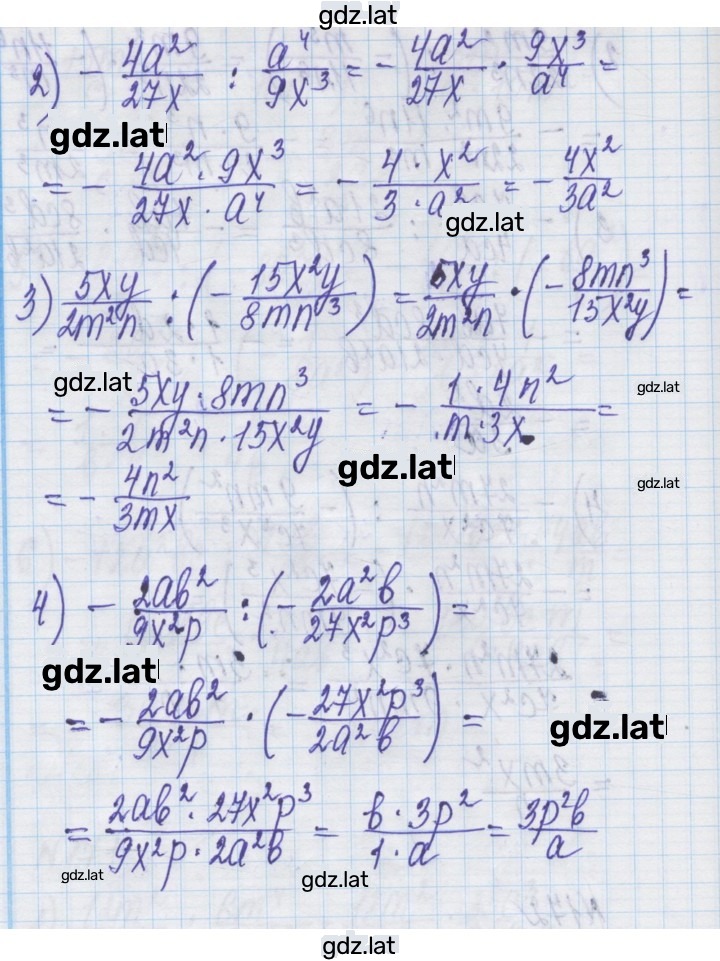 gdz.lat
2) - 4a²/27x : a⁴/9x³ = - 4a²/27x · 9x³/a⁴ =
gdz.lat
= - 4a² · 9x³/27x · a⁴ = - 4 · x²/3 · a² = - 4x²/3a²
gdz.lat
3) 5xy/2m²n : (- 15x²y/8mn³) = 5xy/2m²n · (- 8mn³/15x²y) =
gdz.lat gdz.lat
= - 5xy · 8mn³/2m²n · 15x²y = - 1 · 4n²/m · 3x =
gdz.lat gdz.lat
= - 4n²/3mx
4) - 2ab²/9x²p : (- 2a²b/27x²p³) =
gdz.lat
= - 2ab²/9x²p · (- 27x²p³/2a²b) =
gdz.lat
= 2ab² · 27x²p³/9x²p · 2a²b = b · 3p²/1 · a = 3p²b/a
gdz.lat gdz.lat
gdz.lat